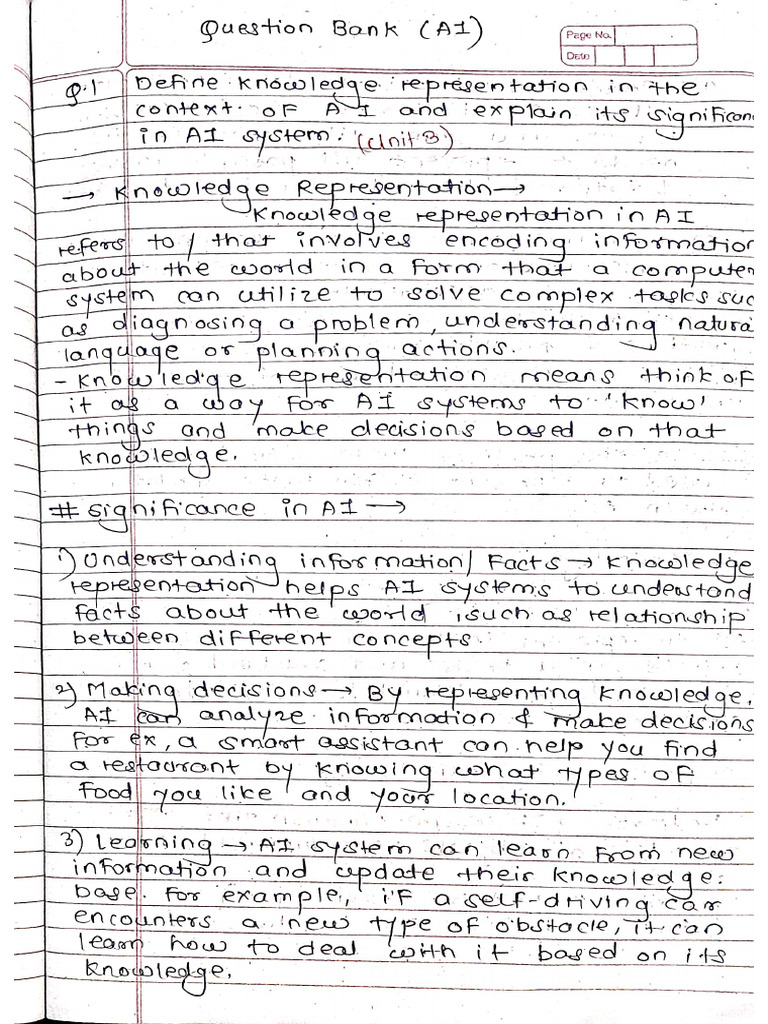 Question Bank (AI)
Page No.
Date
Q.1 Define knowledge representation in the
context of AI and explain its significan
in AI system. (Unit 3)
→ Knowledge Representation →
Knowledge representation in AI
refers to / that involves encoding information
about the world in a form that a computer
system can utilize to solve complex tasks suc
as diagnosing a problem, understanding natura
language or planning actions.
- Knowledge representation means think of
it as a way for AI systems to 'know'
things and make decisions based on that
knowledge.
# Significance in AI →
1) Understanding information / Facts → Knowledge
representation helps AI systems to understand
facts about the world, such as relationship
between different concepts.
2) Making decisions → By representing knowledge,
AI can analyze information & make decisions
for ex, a smart assistant can help you find
a restaurant by knowing what types of
food you like and your location.
3) Learning → AI system can learn from new
information and update their knowledge
base. For example, if a self-driving car
encounters a new type of obstacle, it can
learn how to deal with it based on its
knowledge.